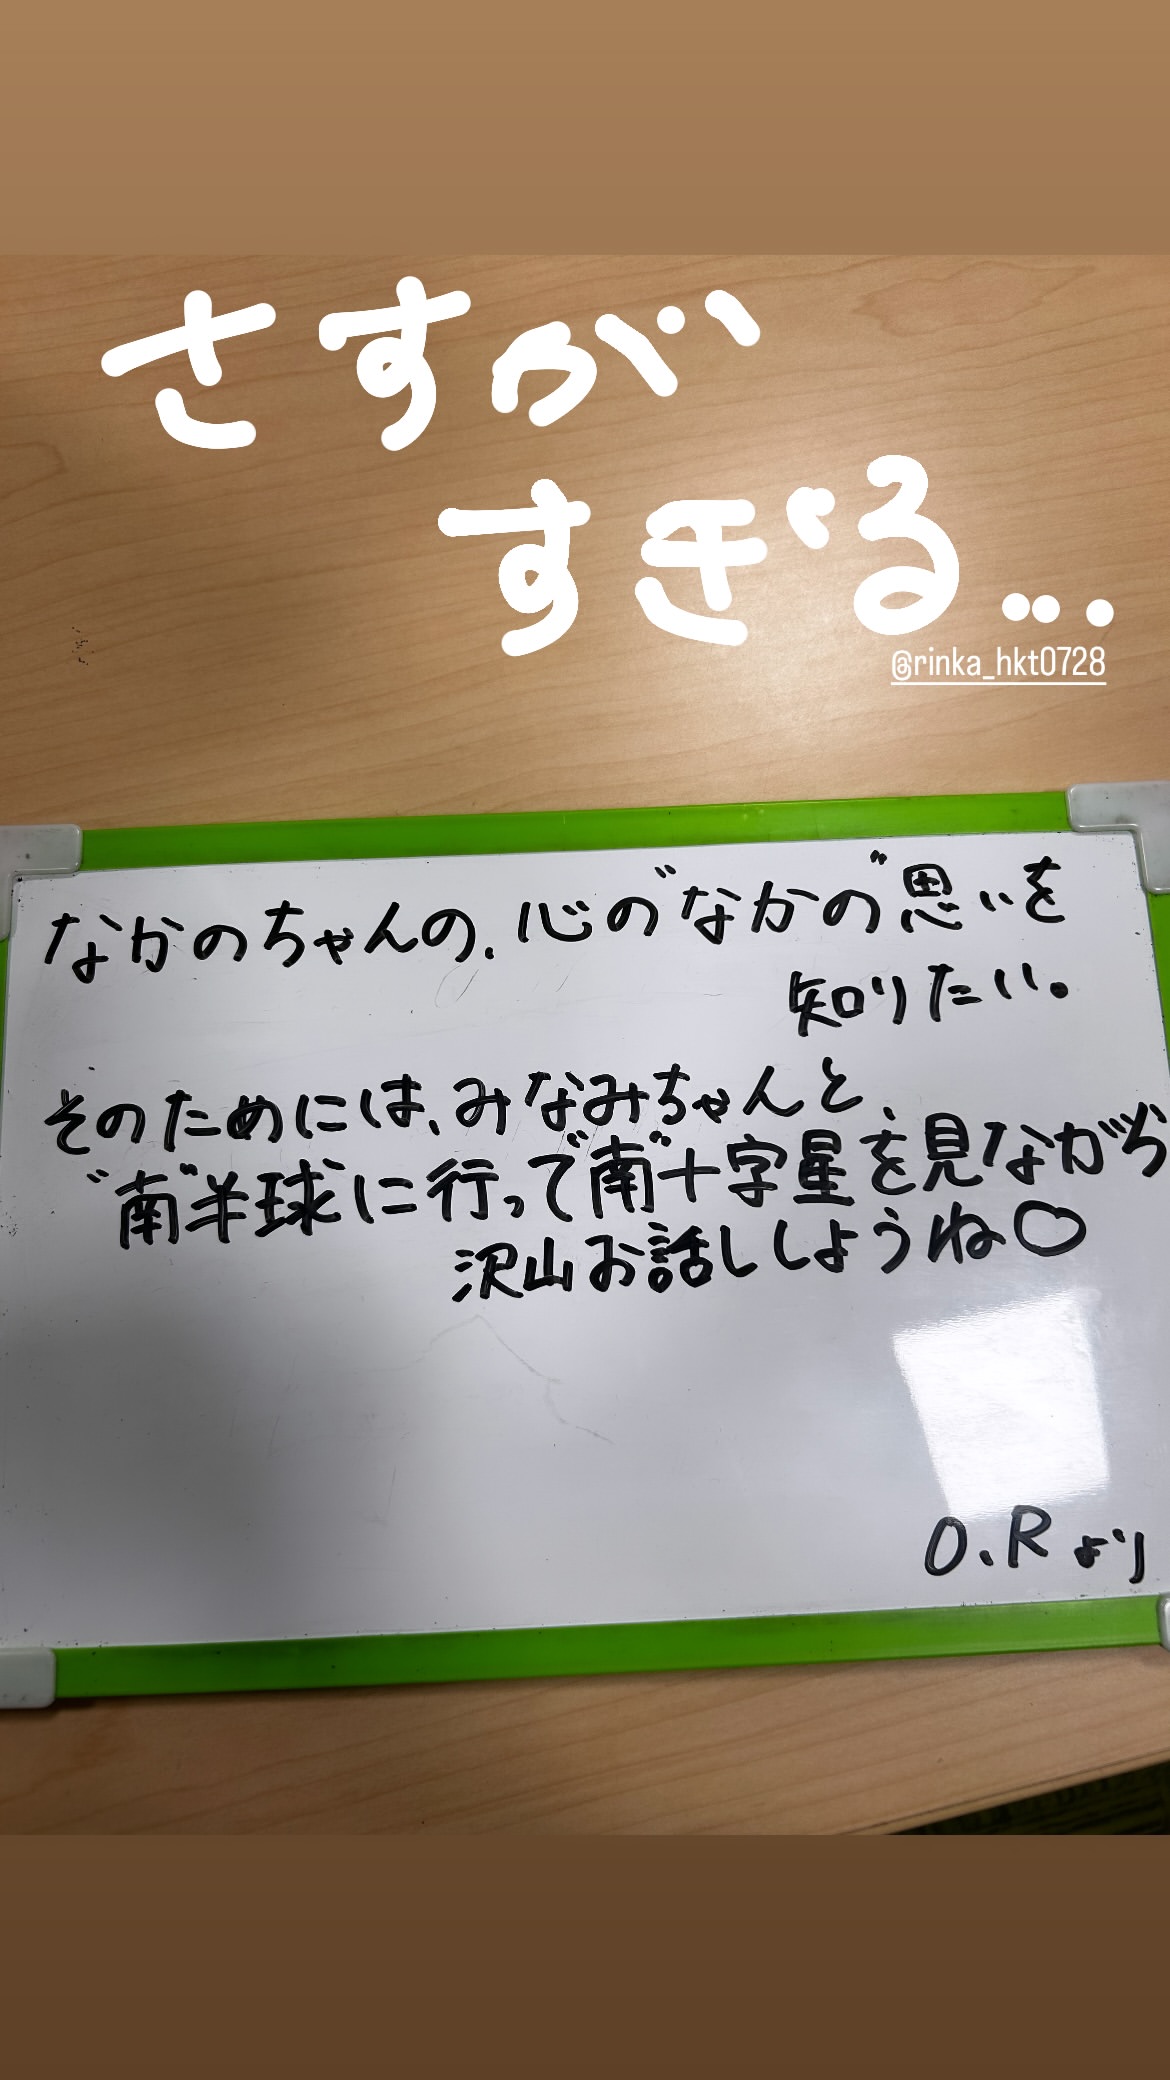 さすが
すぎる...
@rinka_hkt0728
なかのちゃんの、心の"なかの"思いを
知りたい。
そのためには、みなみちゃんと、
"南"半球に行って"南"十字星を見ながら
沢山お話ししようね○
O.Rより